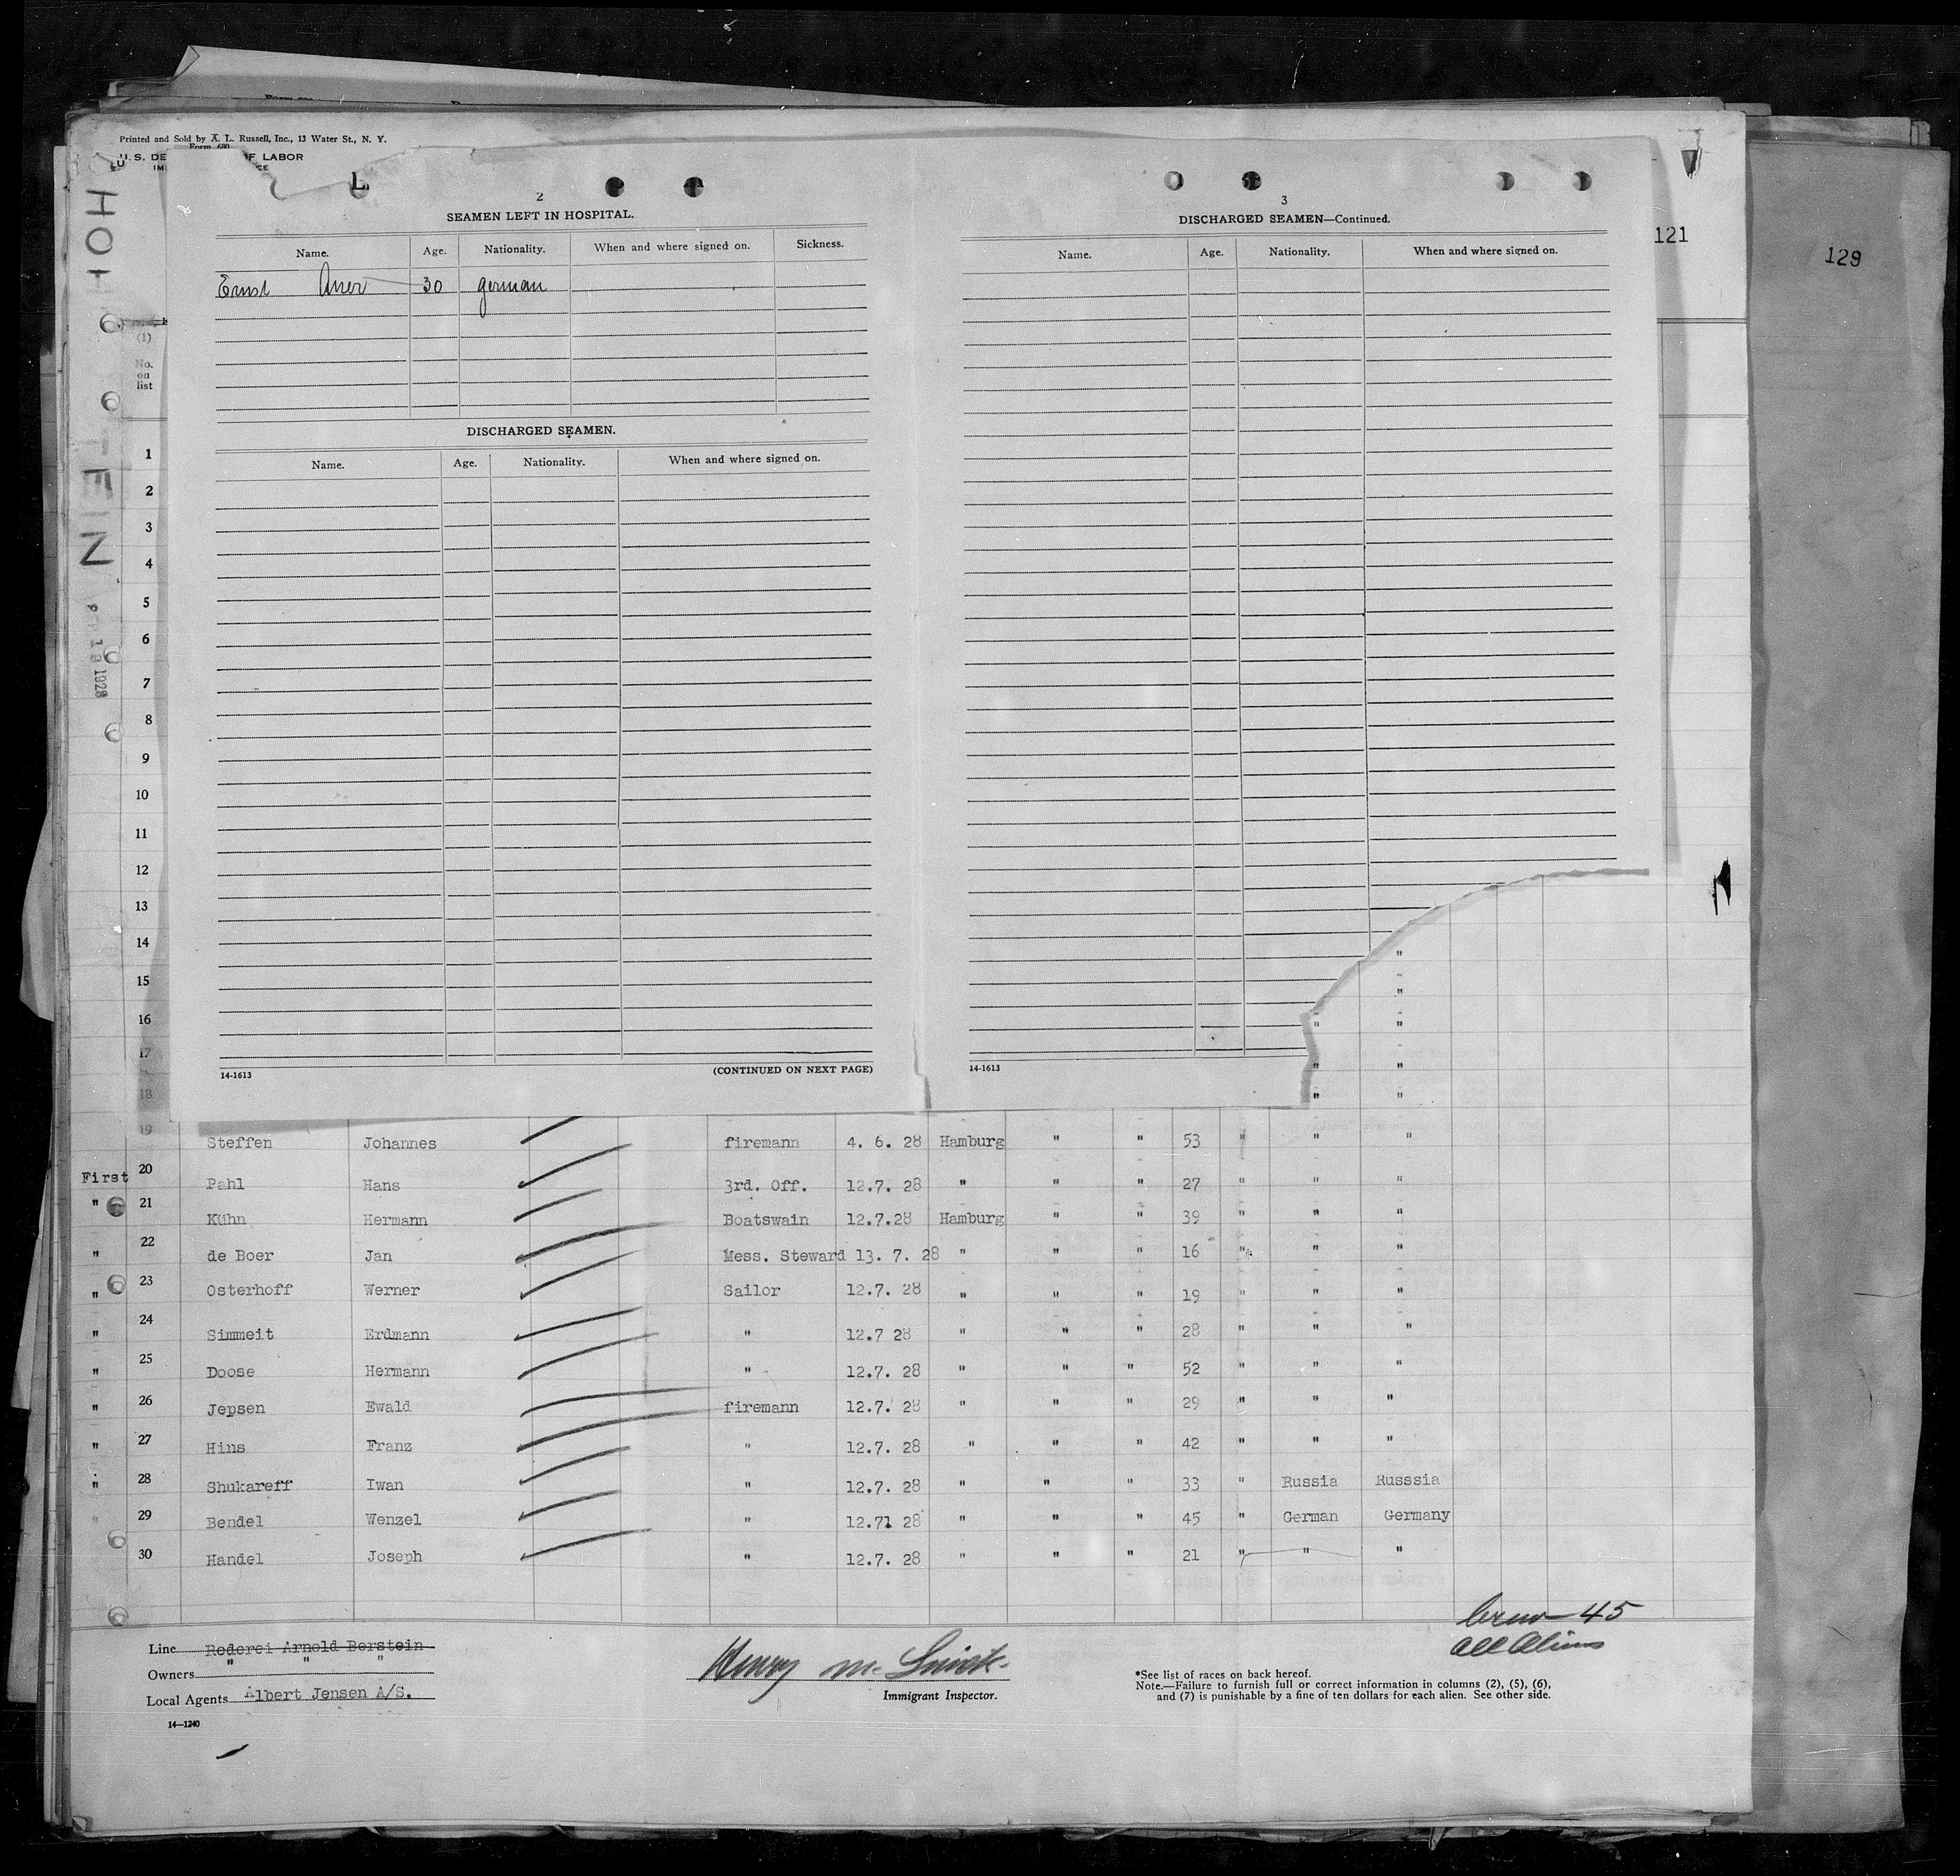 Printed and Sold by A. L. Russell, Inc., 13 Water St., N. Y.
Form 680
U.S. DE OF LABOR
121
129
(1)
No. on list
2
SEAMEN LEFT IN HOSPITAL.
Name. Age. Nationality. When and where signed on. Sickness.
Ernst 30 german
DISCHARGED SEAMEN.
Name. Age. Nationality. When and where signed on.
14-1613 (CONTINUED ON NEXT PAGE)
3
DISCHARGED SEAMEN—Continued.
Name. Age. Nationality. When and where signed on.
14-1613
1
2
3
4
5
6
7
8
9
10
11
12
13
14
15 "
16 " "
17 " "
18 " "
19 Steffen Johannes firemann 4. 6. 28 Hamburg " " 53 " " "
First 20 Pahl Hans 3rd. Off. 12.7. 28 " " " 27 " " "
" 21 Kühn Hermann Boatswain 12.7.28 Hamburg " " 39 " " "
" 22 de Boer Jan Mess. Steward 13. 7. 28 " " " 16 " " "
" 23 Osterhoff Werner Sailor 12.7. 28 " " " 19 " " "
" 24 Simmeit Erdmann " 12.7 28 " " " 28 " " "
" 25 Doose Hermann " 12.7. 28 " " " 52 " " "
" 26 Jepsen Ewald firemann 12.7. 28 " " " 29 " " "
" 27 Hins Franz " 12.7. 28 " " " 42 " " "
" 28 Shukareff Iwan " 12.7. 28 " " " 33 " Russia Russsia
" 29 Bendel Wenzel " 12.71 28 " " " 45 " German Germany
30 Handel Joseph " 12.7. 28 " " " 21 " " "
Crew 45
All Aliens
Line Rederei Arnold Berstein
Owners " " "
Local Agents Albert Jensen A/S.
14—1240
Henry M.
Immigrant Inspector.
*See list of races on back hereof.
Note.—Failure to furnish full or correct information in columns (2), (5), (6),
and (7) is punishable by a fine of ten dollars for each alien. See other side.